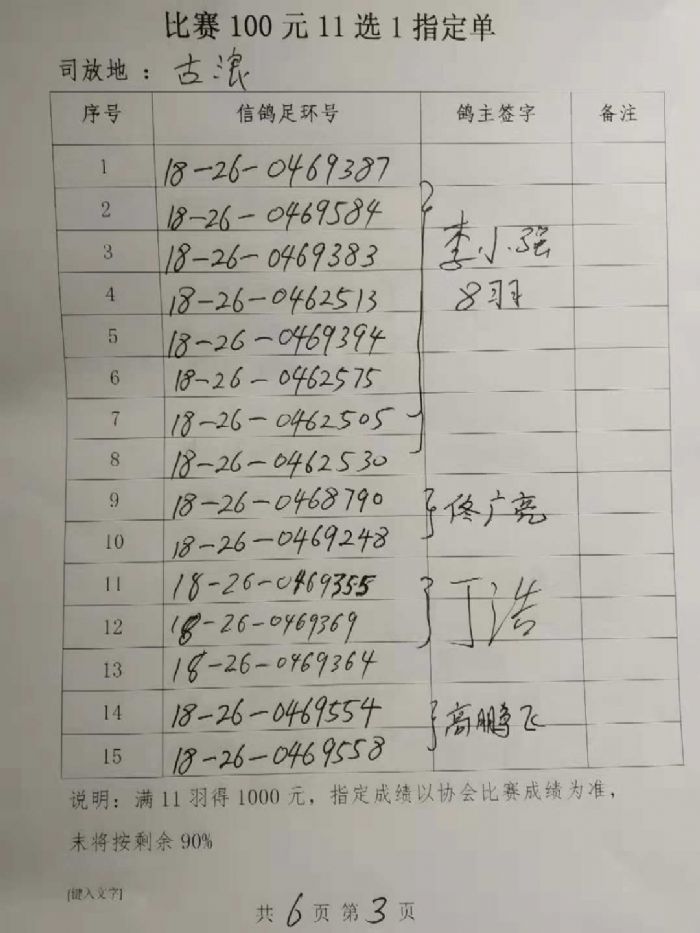 比赛 100 元 11 选 1 指定单
司放地 : 古浪
序号 信鸽足环号 鸽主签字 备注
1 18-26-0469387
2 18-26-0469584
3 18-26-0469383 李小强
4 18-26-0462513 8羽
5 18-26-0469394
6 18-26-0462575
7 18-26-0462505
8 18-26-0462530
9 18-26-0468790 佟广亮
10 18-26-0469248
11 18-26-0469355
12 18-26-0469369 丁浩
13 18-26-0469364
14 18-26-0469554 高鹏飞
15 18-26-0469558
说明: 满 11 羽得 1000 元, 指定成绩以协会比赛成绩为准,
末将按剩余 90%
[键入文字]
共 6 页 第 3 页